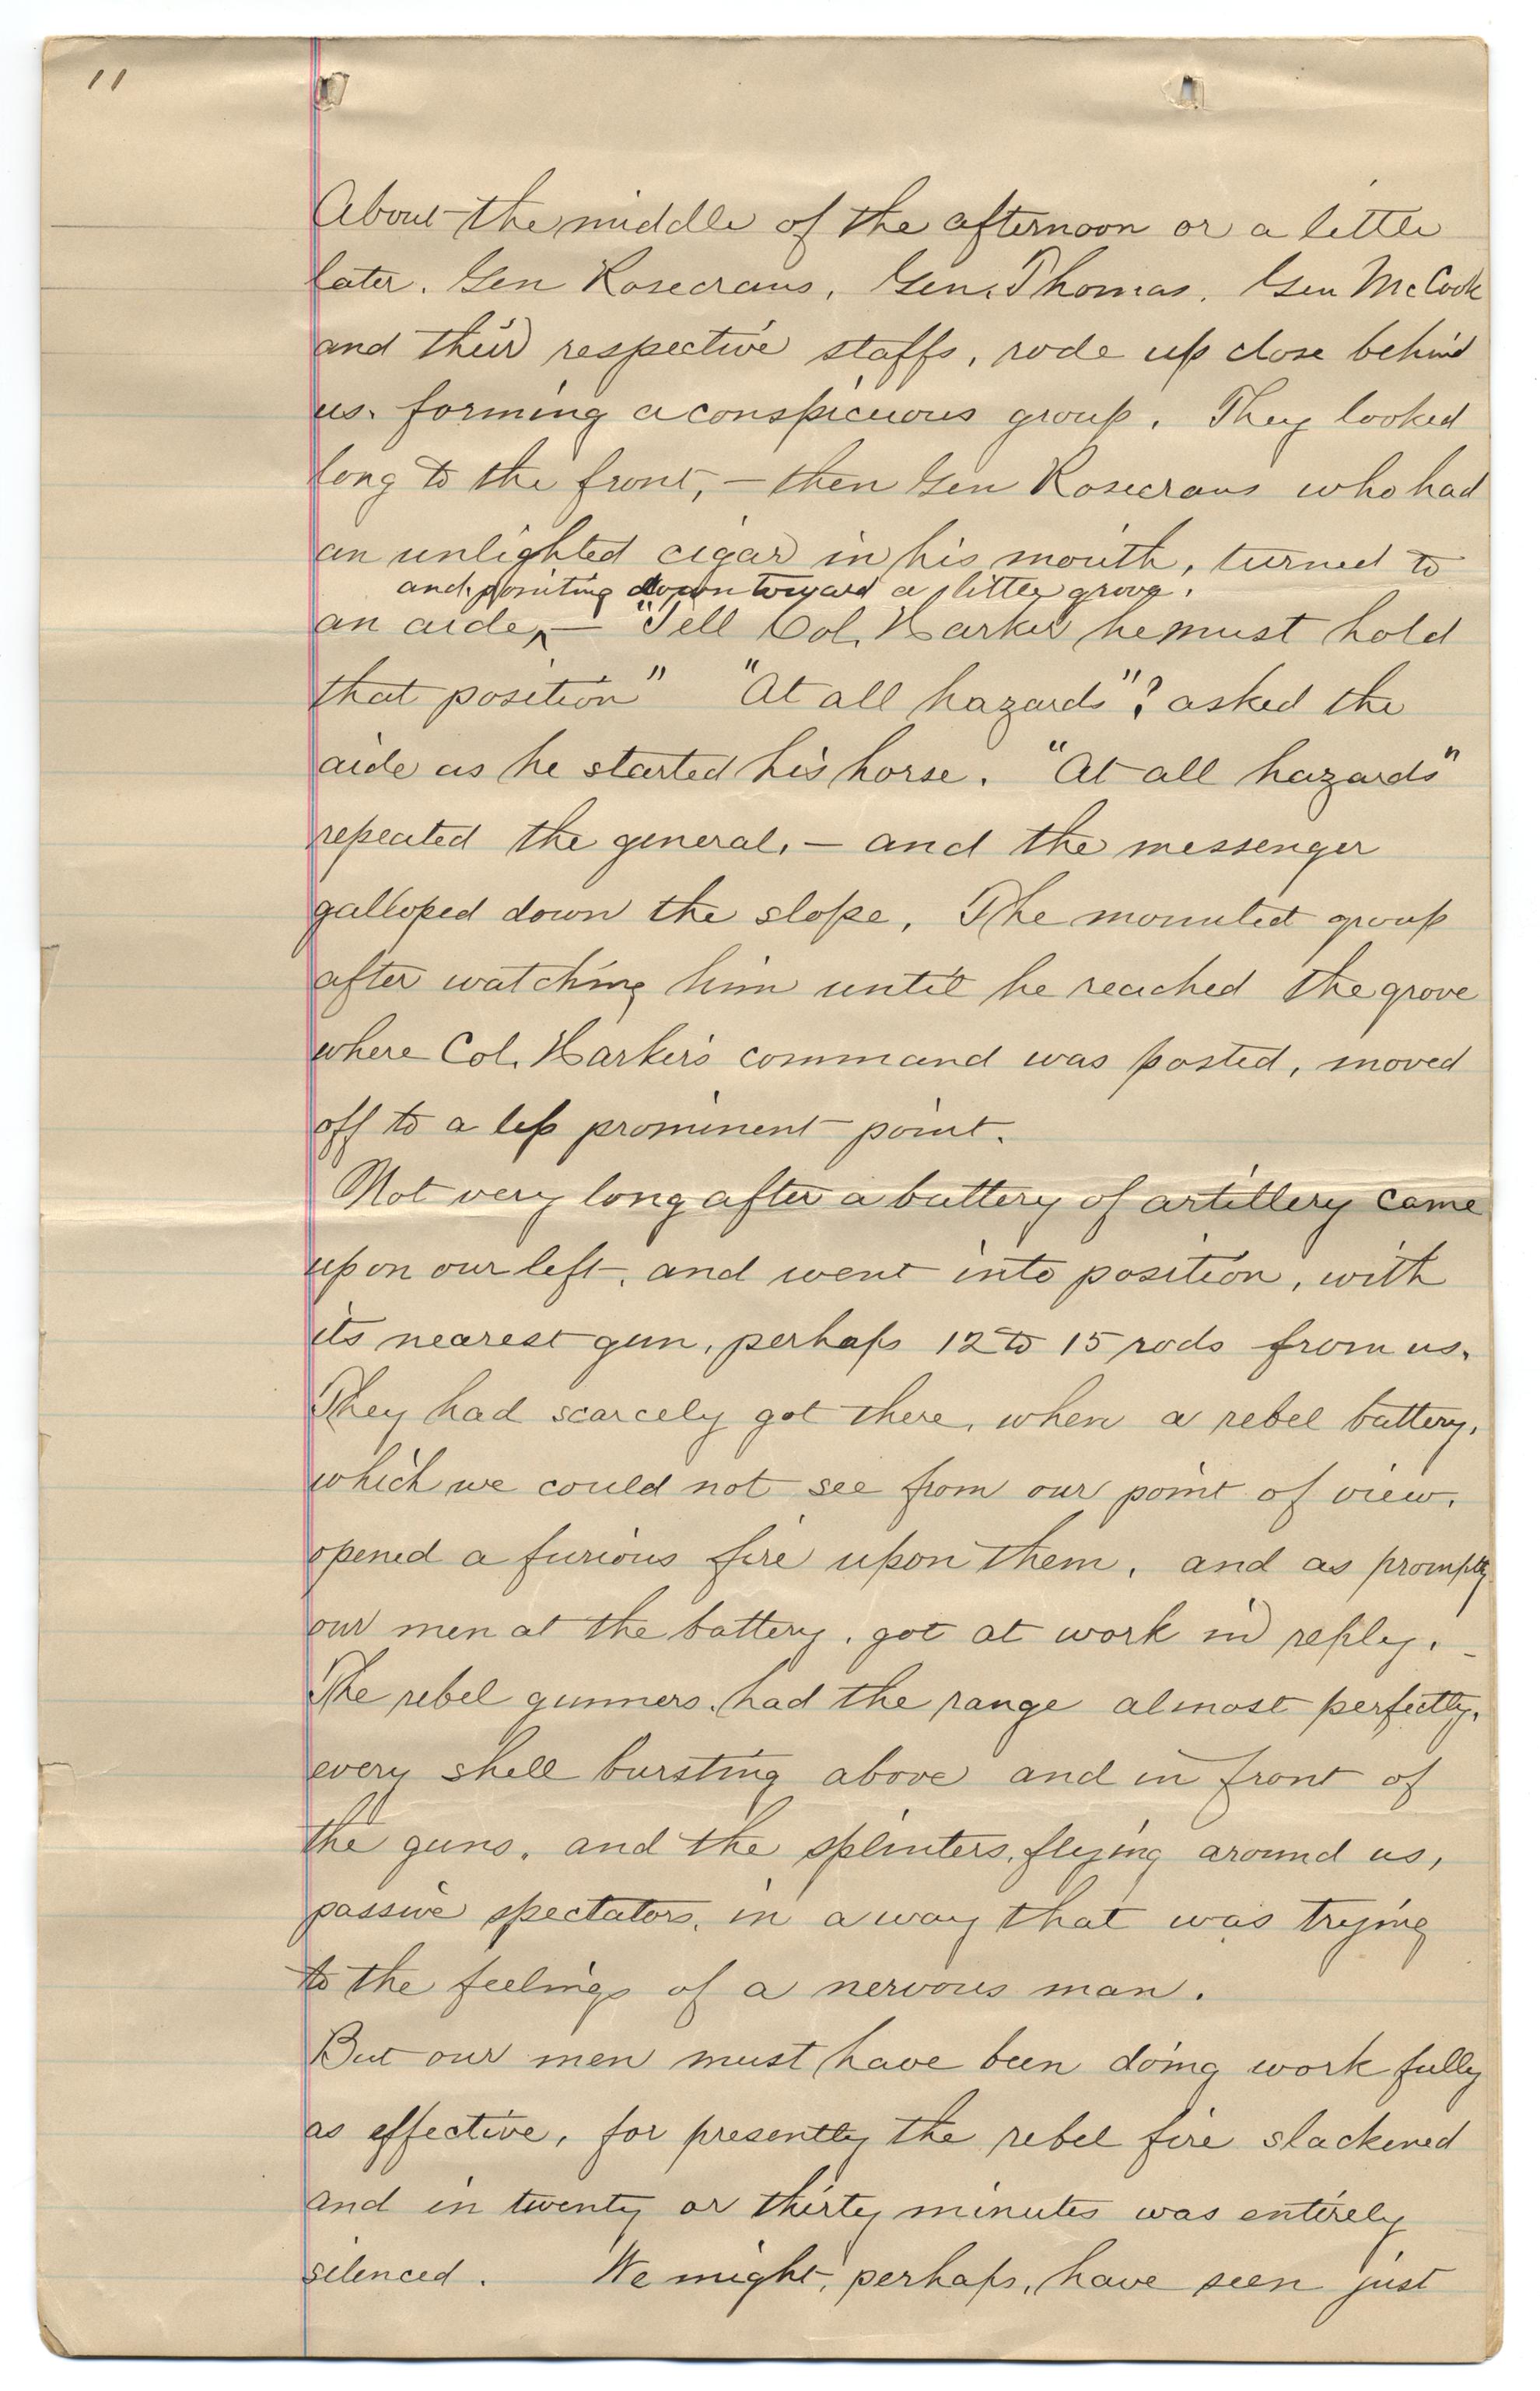 11
About the middle of the afternoon or a little
later. Gen Rosecrans, Gen. Thomas, Gen McCook
and their respective staffs, rode up close behind
us. forming a conspicuous group. They looked
long to the front, – then Gen Rosecrans who had
an unlighted cigar in his mouth, turned to
and pointing down toward a little grove,
an aide, ^ – "Tell Col. Harker he must hold
that position" "At all hazards"? asked the
aide as he started his horse. "At all hazards"
repeated the general, – and the messenger
galloped down the slope. The mounted group
after watching him until he reached the grove
where Col. Harker's command was posted, moved
off to a less prominent point.
Not very long after a battery of artillery came
up on our left, and went into position, with
its nearest gun, perhaps 12 to 15 rods from us.
They had scarcely got there, when a rebel battery,
which we could not see from our point of view,
opened a furious fire upon them, and as promptly
our men at the battery, got at work in reply. –
The rebel gunners, had the range almost perfectly,
every shell bursting above and in front of
the guns, and the splinters, flying around us,
passive spectators, in a way that was trying
to the feelings of a nervous man.
But our men must have been doing work fully
as effective, for presently the rebel fire slackened
and in twenty or thirty minutes was entirely
silenced. We might, perhaps, have seen just